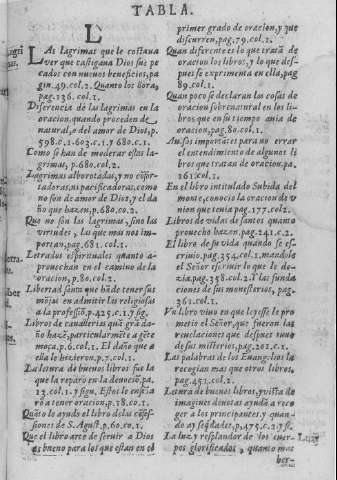 TABLA.
L
LAs lagrimas que le costaua
ver que castigaua Dios sus pe
cados con nueuos beneficios, pa
gin. 49. col. 1. Quanto los llora,
pag. 136. col. 1.
Diferencia de las lagrimas en la
oracion, quando proceden de
natural, o del amor de Dios, p.
598. c. 1. 602. c. 1. y 680. c. 1.
Como se han de moderar estas la-
grimas, p. 680. col. 2.
Lagrimas alborotadas, y no
tadoras, ni pacificadoras, como
no son de amor de Dios, y el da
ño que hazen, p. 680. co. 2.
Que no son las lagrimas, sino las
virtudes, las que mas nos im-
portan, pag. 681. col. 1.
Letrados espirituales quanto a-
prouechan en el camino de la
oracion, p. 80. col. 2.
Libertad santa que hā de tener sus
mōjas en admitir las religiosas
a la professiō, p. 425. c. 1. y sig.
Libros de cauallerias quā gra da-
ño hazē, particularmēte a gēte
moça, p. 6. col. 1. El daño que a
ella le hizieron, p. 7. col. 1.
La letura de buenos libros fue la
que la reparò en la deuociō, pa.
13. col. 1. y sigu. Estos le enseña
rō a tener oracion, p. 18. co. 1.
Quāto le ayudò el libro de las cōfes-
siones de S. Agust. p. 60. co. 1.
Que el libro arte de seruir a Dios
es bueno para los que estan en el
primer grado de oracion, y que
discurren, pag. 79. col. 1.
Quan diferente es lo que tratā de
oracion los libros, y lo que des-
pues se exprimenta en ella, pag
89. col. 1.
Quan poco se declaran las cosas de
oracion sobrenatural en los li-
bros que en su tiempo auia de
oracion, pag. 80. col. 1.
Auisos importātes para no errar
el entendimiento de algunos li
bros que tratan de oracion, pa.
161. col. 1.
En el libro intitulado Subida del
monte, conocio la oracion de v
nion que tenia pag. 177. col. 2.
Libros de vidas de santos quanto
prouecho hazen, pag. 241. c. 2.
El libro de su vida quando se es-
criuio, pag. 354. col. 1. mandole
el Señor escriuir lo que le de-
zia, pag. 358. col. 2. Y las funda
ciones de sus monesterios, pag.
361. col. 1.
Vn libro viuo en que leyesse le pro
metio el Señor, que fueron las
reuelaciones que despues tuuo
de sus misterios, pag. 201. c. 1.
Las palabras de los Euangelios la
recogian mas que otros libros,
pag. 451. col. 2.
Letura de buenos libros, y vista de
imagines deuotas ayuda a reco
ger a los principiantes, y quan-
do ay seq̄dades, p. 475. c. 2. y si.
La luz y resplandor de los cuer-
pos glorificados, quanto mas
ber-